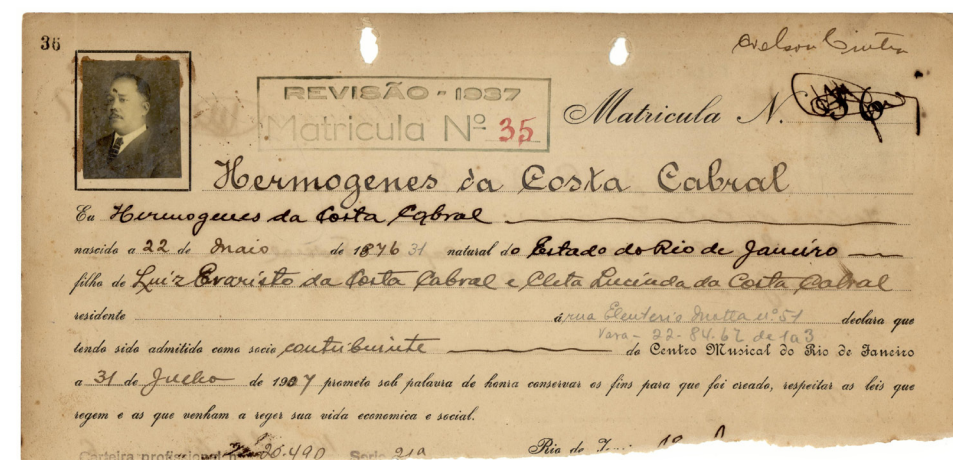 36
REVISÃO - 1937
Matricula Nº 35
Matricula N.
Hermogenes da Costa Cabral
Eu Hermogenes da Costa Cabral
nascido a 22 de Maio de 1876 31 natural do Estado do Rio de Janeiro
filho de Luiz Evaristo da Costa Cabral e Cleta Lucinda da Costa Cabral
residente á rua nº 51 declara que
22-84.67 de 1 a 3
tendo sido admitido como socio contribuinte do Centro Musical do Rio de Janeiro
a 31 de Julho de 1907 prometo sob palavra de honra conservar os fins para que foi creado, respeitar as leis que
regem e as que venham a reger sua vida economica e social.
Carteira profissional 26.490 Serie 21a Rio de